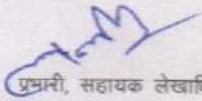 प्रभारी, सहायक लेखाधि